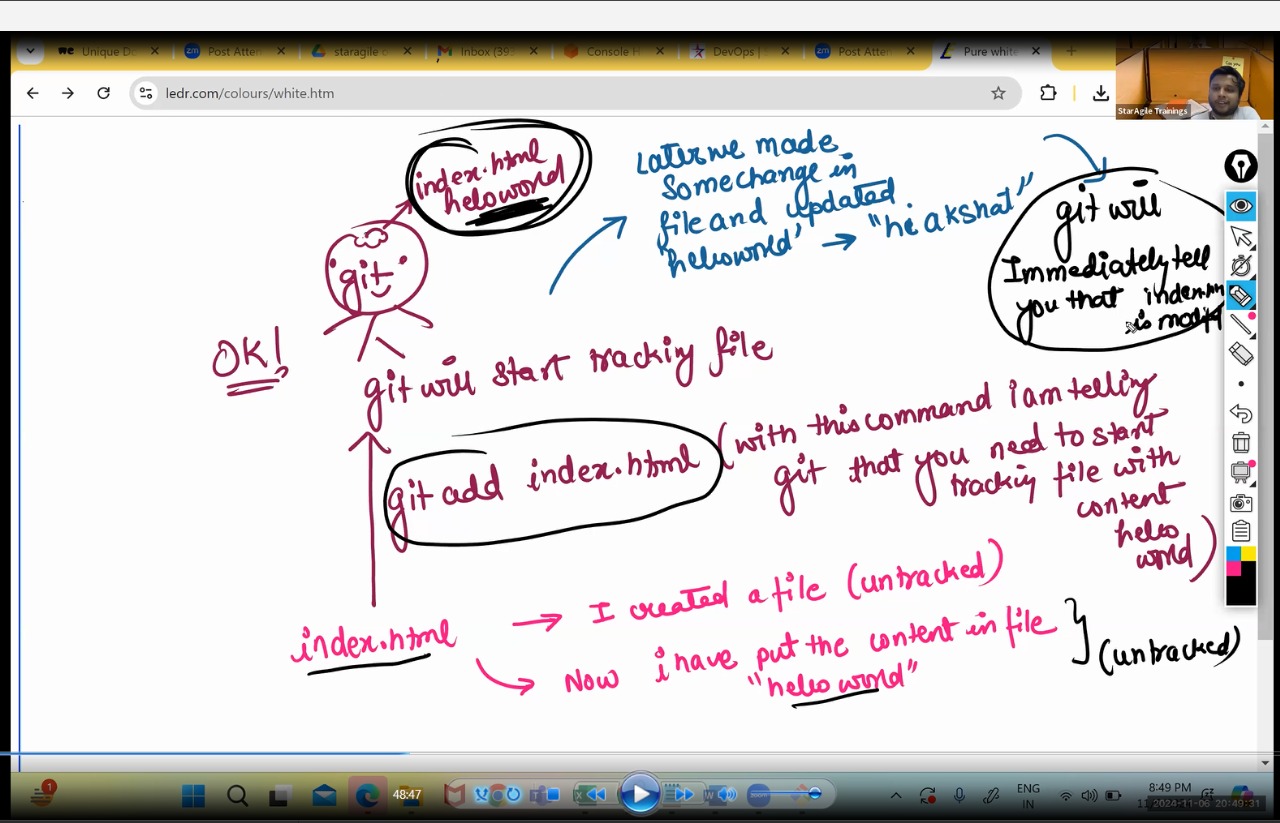 Unique Do
Post Atten
staragile c
Inbox (39
Console H
DevOps |
Post Atten
Pure white
ledr.com/colours/white.htm
StarAgile Trainings
index.html
heloworld
git
OK!
Later we made
Some change in
file and updated
"helloworld" → "hi akshat"
git will
Immediately tell
you that
is modif
git will start trackiy file
git add index.html
(with this command i am telliy
git that you need to start
trackiy file with
content
hello
world)
index.html
→ I created a file (untracked)
Now i have put the content in file
"hello world"
(untracked)
48:47
ENG
IN
8:49 PM
2024-11-06 20:49:31
1